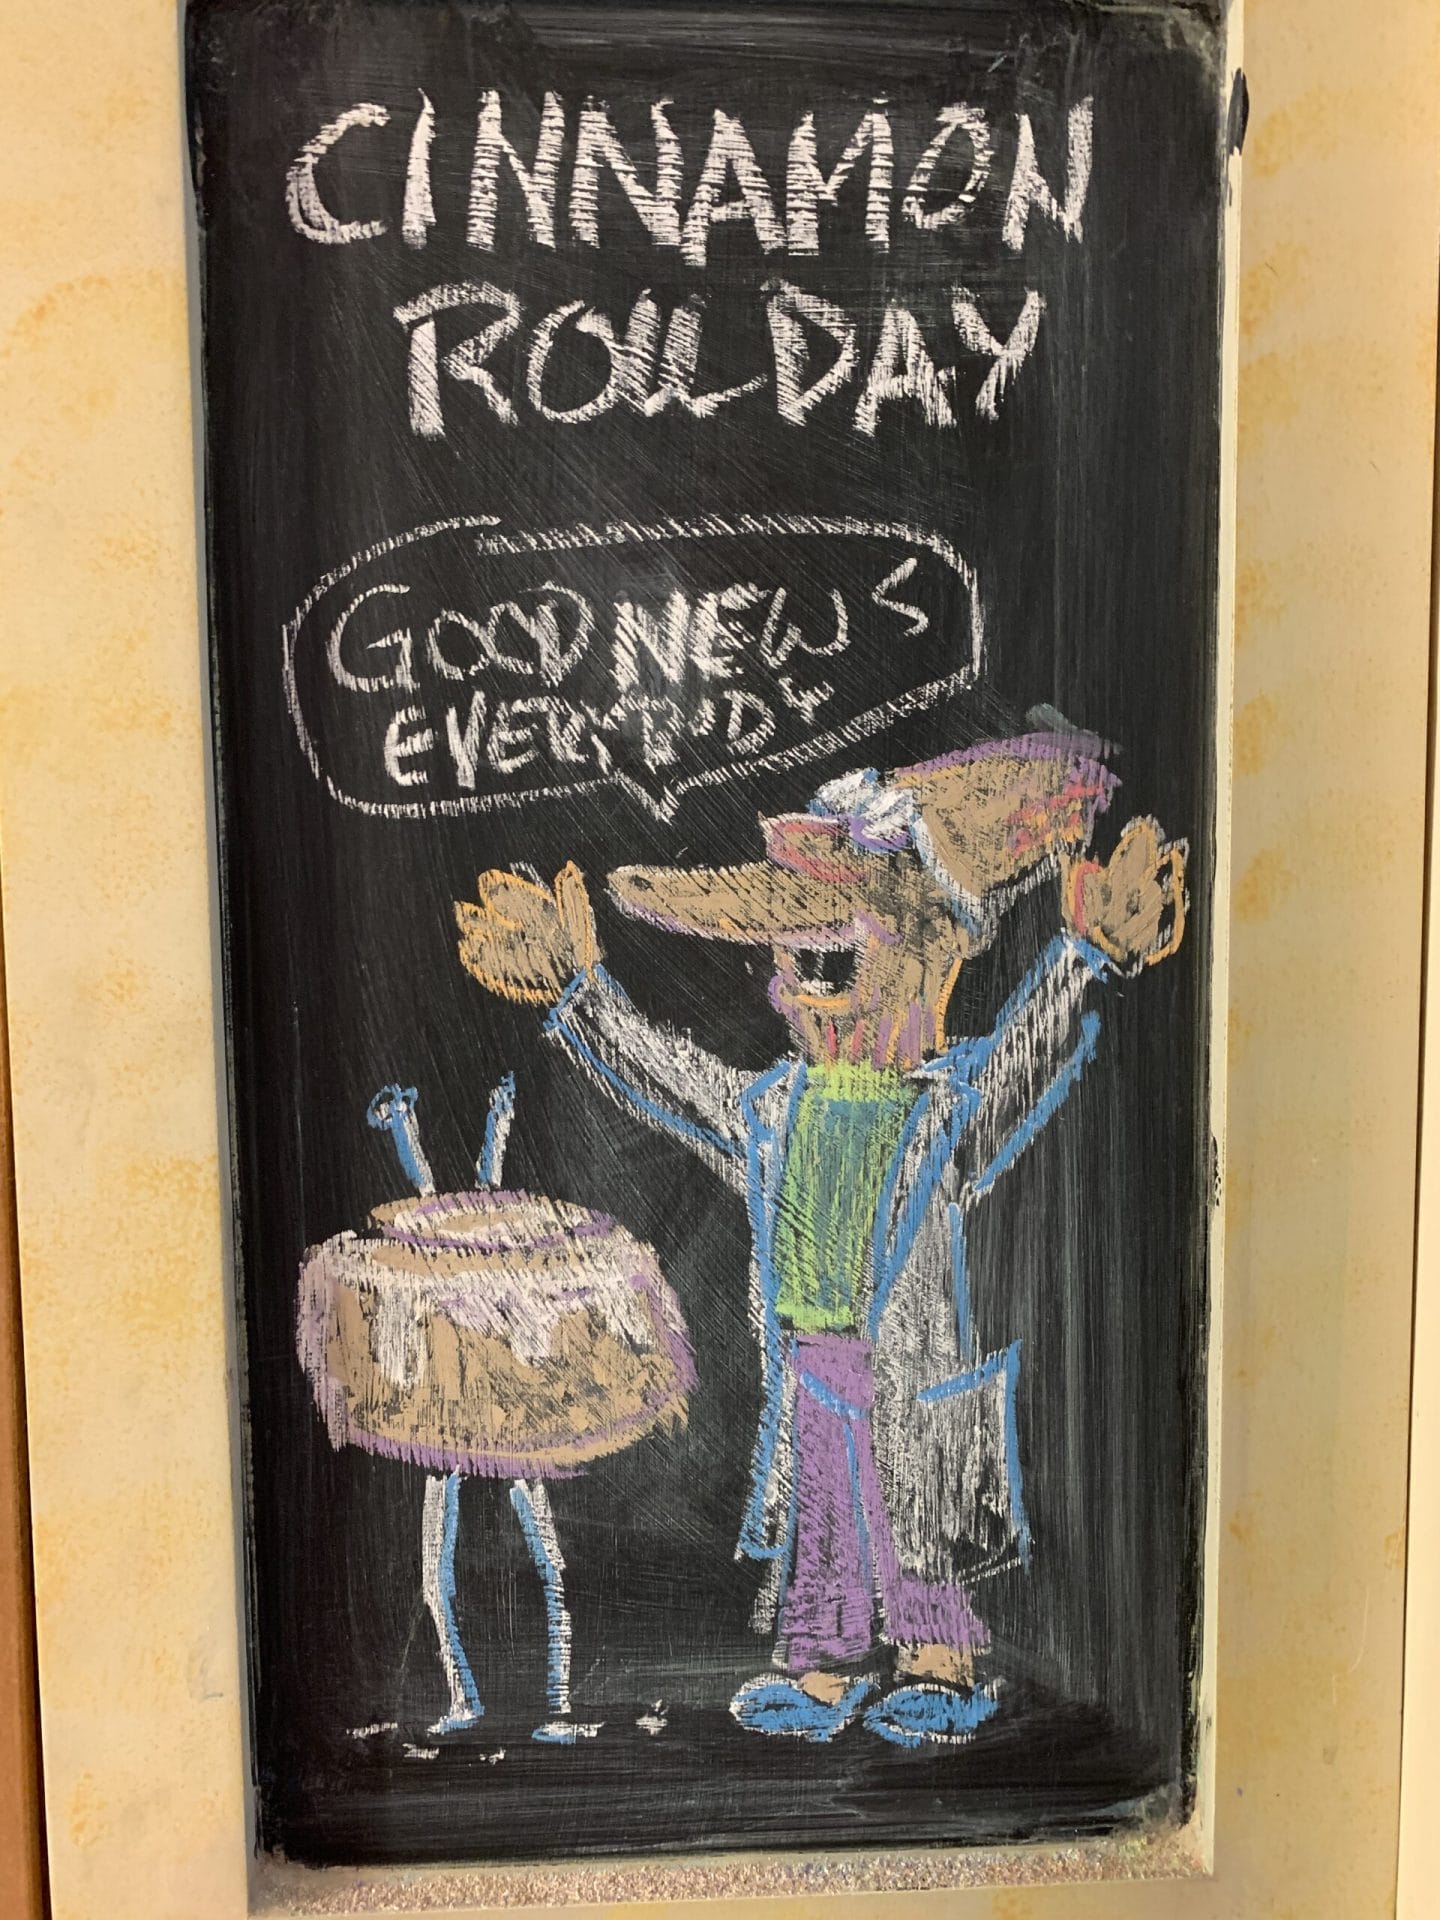 CINNAMON
ROLL DAY
GOOD NEWS
EVERYBODY